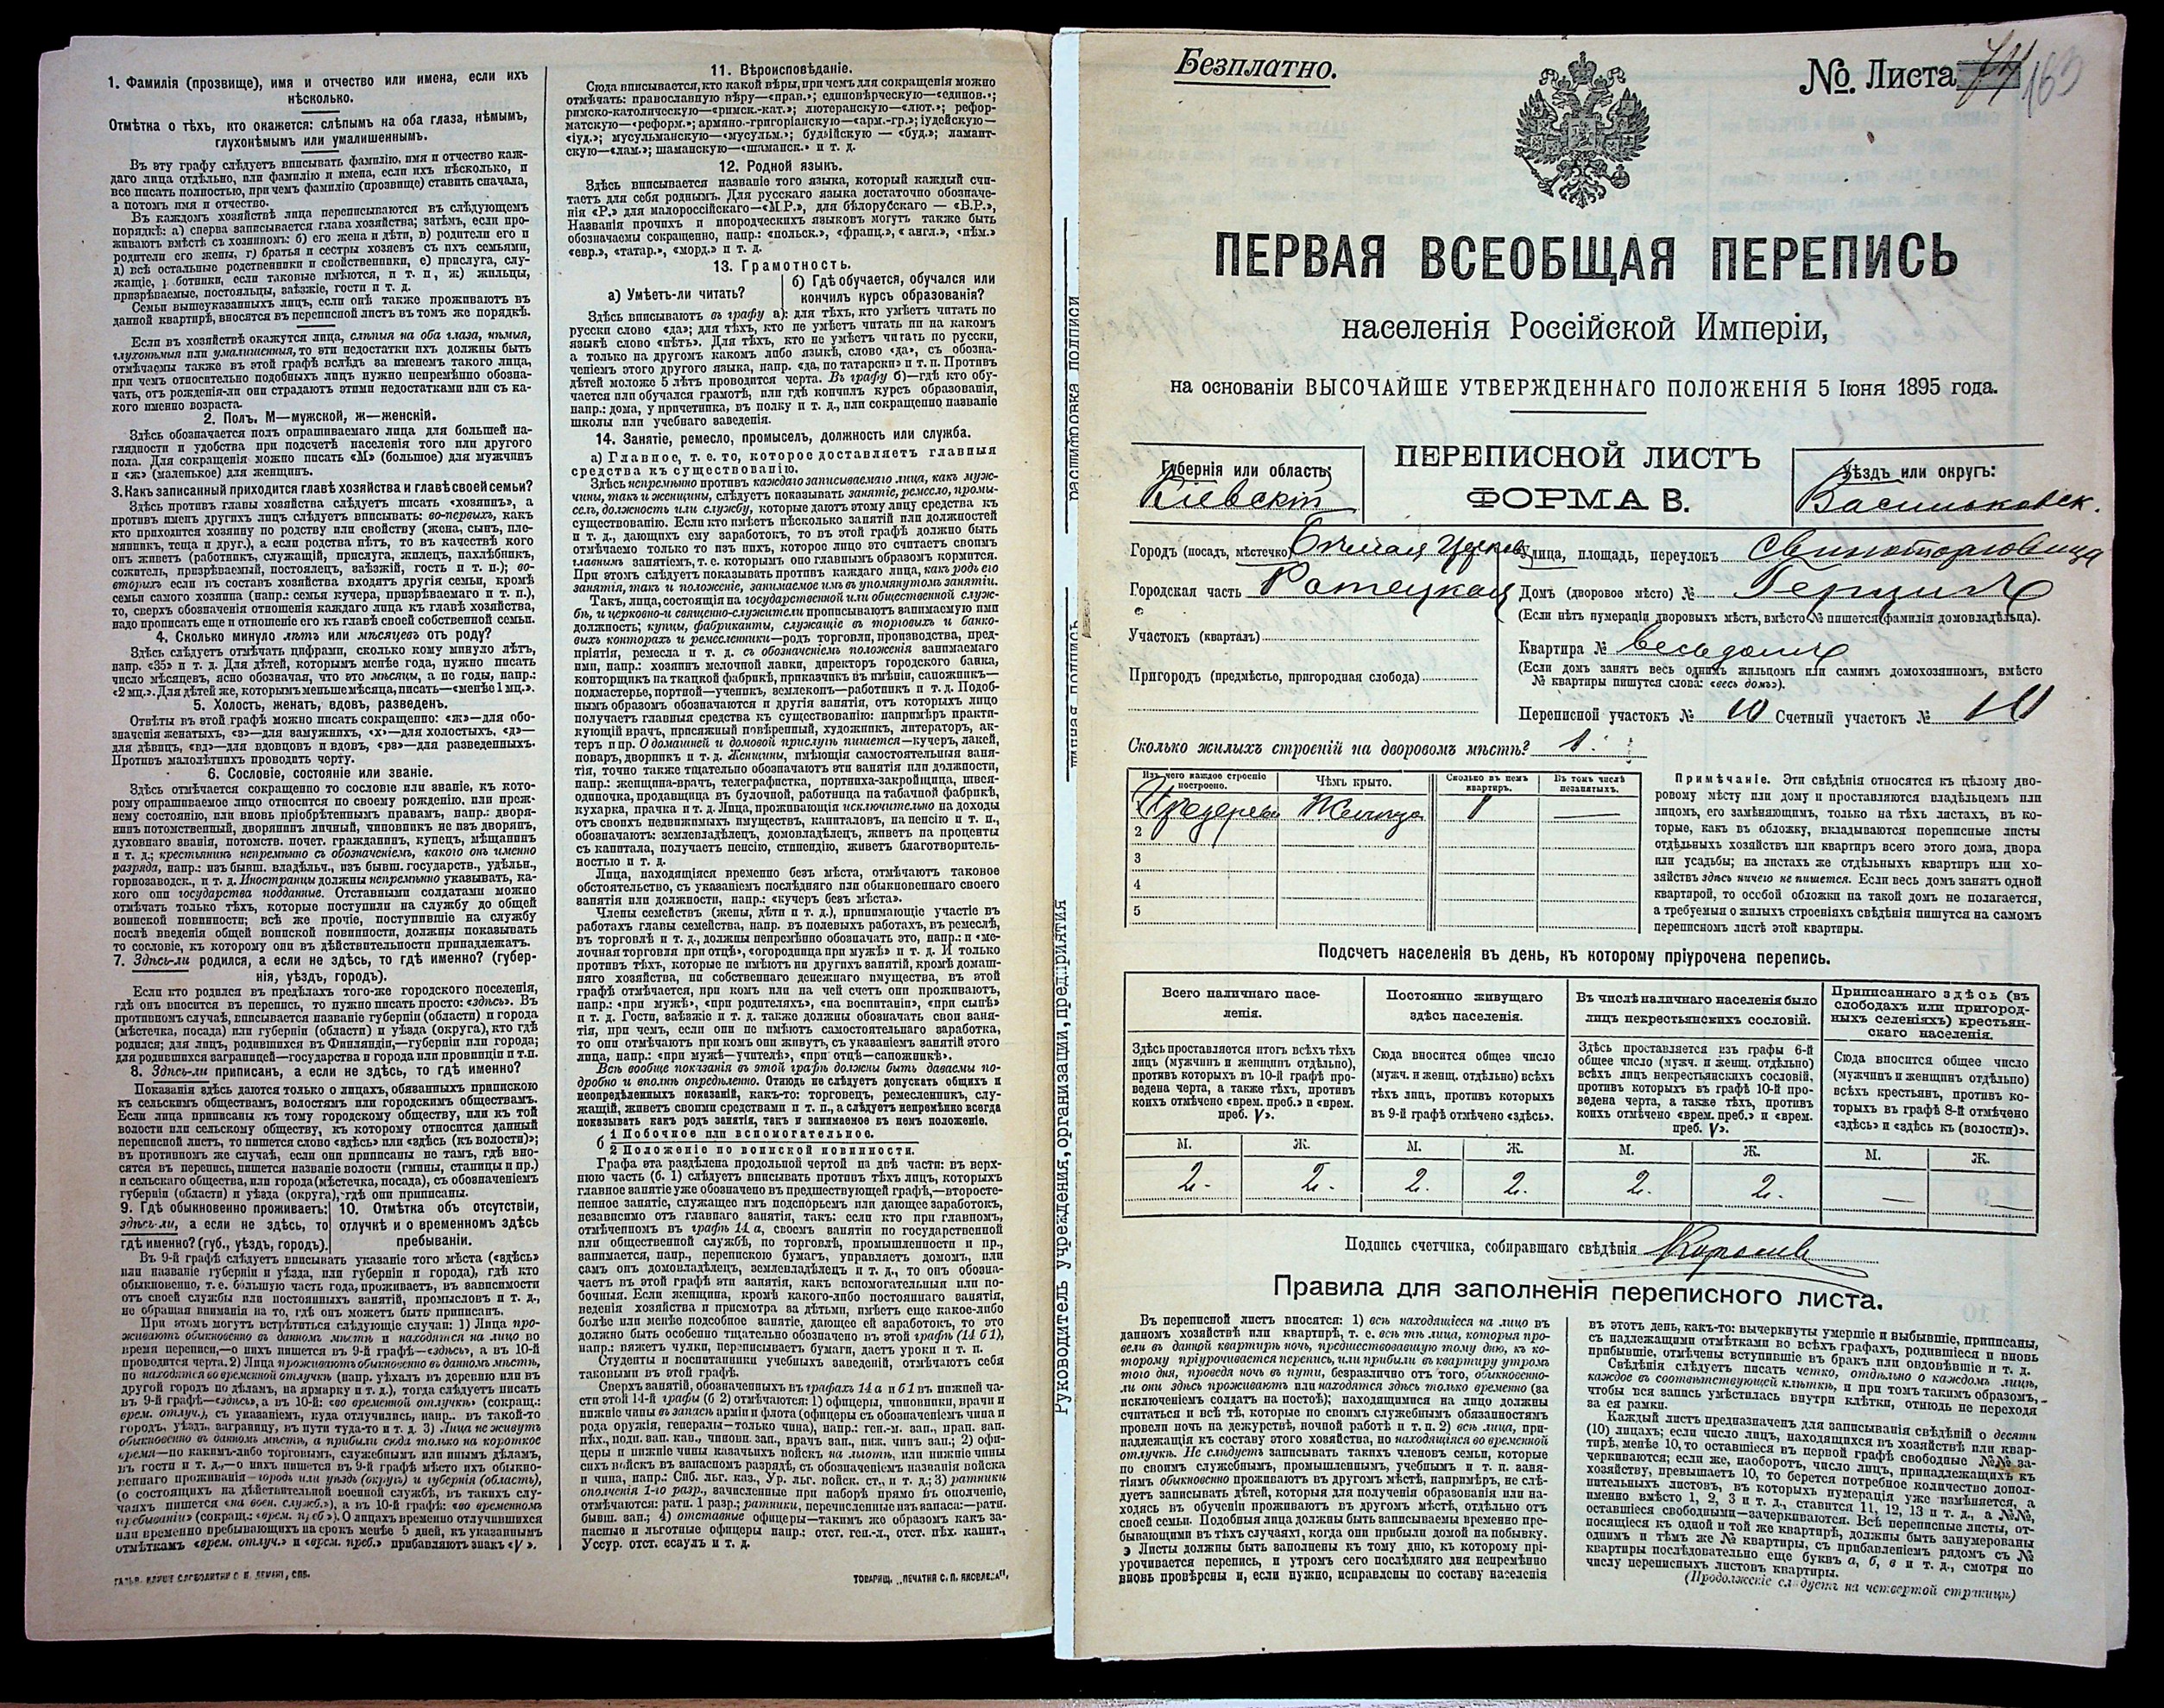 1. Фамилія (прозвище), имя и отчество или имена, если ихъ
нѣсколько.
Отмѣтка о тѣхъ, кто окажется: слѣпымъ на оба глаза, нѣмымъ,
глухонѣмымъ или умалишеннымъ.
Въ эту графу слѣдуетъ вписывать фамилію, имя и отчество каж-
даго лица отдѣльно, или фамилію и имена, если ихъ нѣсколько, и
все писать полностью, при чемъ фамилію (прозвище) ставить сначала,
а потомъ имя и отчество.
Въ каждомъ хозяйствѣ лица переписываются въ слѣдующемъ
порядкѣ: а) сперва записывается глава хозяйства; затѣмъ, если про-
живаютъ вмѣстѣ съ хозяиномъ: б) его жена и дѣти, в) родители его и
родители его жены, г) братья и сестры хозяевъ съ ихъ семьями,
д) всѣ остальные родственники и свойственники, е) прислуга, слу-
жащіе, работники, если таковые имѣются, и т. п, ж) жильцы,
призрѣваемые, постояльцы, заѣзжіе, гости и т. п.
Семьи вышеуказанныхъ лицъ, если онѣ также проживаютъ въ
данной квартирѣ, вносятся въ переписной листъ въ томъ же порядкѣ.
Если въ хозяйствѣ окажутся лица, слѣпыя на оба глаза, нѣмыя,
глухонѣмыя или умалишенныя, то эти недостатки ихъ должны быть
отмѣчаемы также въ этой графѣ вслѣдъ за именемъ такого лица,
при чемъ относительно подобныхъ лицъ нужно непремѣнно обозна-
чать, отъ рожденія-ли они страдаютъ этими недостатками или съ ка-
кого именно возраста.
2. Полъ. М—мужской, ж—женскій.
Здѣсь обозначается полъ опрашиваемаго лица для большей на-
глядности и удобства при подсчетѣ населенія того или другого
пола. Для сокращенія можно писать «М» (большое) для мужчинъ
и «ж» (маленькое) для женщинъ.
3. Какъ записанный приходится главѣ хозяйства и главѣ своей семьи?
Здѣсь противъ главы хозяйства слѣдуетъ писать «хозяинъ», а
противъ именъ другихъ лицъ слѣдуетъ вписывать: во-первыхъ, какъ
кто приходится хозяину по родству или свойству (жена, сынъ, пле-
мянникъ, теща и друг.), а если родства нѣтъ, то въ качествѣ кого
онъ живетъ (работникъ, служащій, прислуга, жилецъ, нахлѣбникъ,
сожитель, призрѣваемый, постоялецъ, заѣзжій, гость и т. п.); во-
вторыхъ если въ составъ хозяйства входятъ другія семьи, кромѣ
семьи самого хозяина (напр.: семья кучера, призрѣваемаго и т. п.),
то, сверхъ обозначенія отношенія каждаго лица къ главѣ хозяйства,
надо прописать еще и отношеніе его къ главѣ своей собственной семьи.
4. Сколько минуло лѣтъ или мѣсяцевъ отъ роду?
Здѣсь слѣдуетъ отмѣчать цифрами, сколько кому минуло лѣтъ,
напр. «35» и т. д. Для дѣтей, которымъ менѣе года, нужно писать
число мѣсяцевъ, ясно обозначая, что это мѣсяцы, а не годы, напр.:
«2 мц.». Для дѣтей же, которымъ меньше мѣсяца, писать—«менѣе 1 мц.».
5. Холостъ, женатъ, вдовъ, разведенъ.
Отвѣты въ этой графѣ можно писать сокращенно: «ж»—для обо-
значенія женатыхъ, «з»—для замужнихъ, «х»—для холостыхъ, «д»—
для дѣвицъ, «вд»—для вдовцовъ и вдовъ, «рв»—для разведенныхъ.
Противъ малолѣтнихъ проводить черту.
6. Сословіе, состояніе или званіе.
Здѣсь отмѣчается сокращенно то сословіе или званіе, къ кото-
рому опрашиваемое лицо относится по своему рожденію, или преж-
нему состоянію, или вновь пріобрѣтеннымъ правамъ, напр.: дворя-
нинъ потомственный, дворянинъ личный, чиновникъ не изъ дворянъ,
духовнаго званія, потомств. почет. гражданинъ, купецъ, мѣщанинъ
и т. д.; крестьянинъ непремѣнно съ обозначеніемъ, какого онъ именно
разряда, напр.: изъ бывш. владѣльч., изъ бывш. государств., удѣльн.,
горнозаводск., и т. д. Иностранцы должны непремѣнно указывать, ка-
кого они государства подданные. Отставными солдатами можно
отмѣчать только тѣхъ, которые поступили на службу до общей
воинской повинности; всѣ же прочіе, поступившіе на службу
послѣ введенія общей воинской повинности, должны показывать
то сословіе, къ которому они въ дѣйствительности принадлежатъ.
7. Здѣсь-ли родился, а если не здѣсь, то гдѣ именно? (губер-
нія, уѣздъ, городъ).
Если кто родился въ предѣлахъ того-же городского поселенія,
гдѣ онъ вносится въ перепись, то нужно писать просто: «здѣсь». Въ
противномъ случаѣ, вписывается названіе губерніи (области) и города
(мѣстечка, посада) или губерніи (области) и уѣзда (округа), кто гдѣ
родился; для лицъ, родившихся въ Финляндіи,—губерніи или города;
для родившихся заграницей—государства и города или провинціи и т.п.
8. Здѣсь-ли приписанъ, а если не здѣсь, то гдѣ именно?
Показанія здѣсь даются только о лицахъ, обязанныхъ припискою
къ сельскимъ обществамъ, волостямъ или городскимъ обществамъ.
Если лица приписаны къ тому городскому обществу, или къ той
волости или сельскому обществу, къ которому относится данный
переписной листъ, то пишется слово «здѣсь» или «здѣсь (къ волости)»;
въ противномъ же случаѣ, если они приписаны не тамъ, гдѣ вно-
сятся въ перепись, пишется названіе волости (гмины, станицы и пр.)
и сельскаго общества, или города (мѣстечка, посада), съ обозначеніемъ
губерніи (области) и уѣзда (округа), гдѣ они приписаны.
9. Гдѣ обыкновенно проживаетъ:
здѣсь-ли, а если не здѣсь, то
гдѣ именно? (губ., уѣздъ, городъ).
10. Отмѣтка объ отсутствіи,
отлучкѣ и о временномъ здѣсь
пребываніи.
Въ 9-й графѣ слѣдуетъ вписывать указаніе того мѣста («здѣсь»
или названіе губерніи и уѣзда, или губерніи и города), гдѣ кто
обыкновенно, т. е. большую часть года, проживаетъ, въ зависимости
отъ своей службы или постоянныхъ занятій, промысловъ и т. д.,
не обращая вниманія на то, гдѣ онъ можетъ быть приписанъ.
При этомъ могутъ встрѣтиться слѣдующіе случаи: 1) Лица про-
живаютъ обыкновенно въ данномъ мѣстѣ и находятся на лицо во
время переписи,—о нихъ пишется въ 9-й графѣ—«здѣсь», а въ 10-й
проводится черта. 2) Лица проживаютъ обыкновенно въ данномъ мѣстѣ,
но находятся во временной отлучкѣ (напр. уѣхалъ въ деревню или въ
другой городъ по дѣламъ, на ярмарку и т. д.), тогда слѣдуетъ писать
въ 9-й графѣ—«здѣсь», а въ 10-й: «во временной отлучкѣ» (сокращ.:
врем. отлуч.), съ указаніемъ, куда отлучились, напр.. въ такой-то
городъ, уѣздъ, заграницу, въ пути туда-то и т. д. 3) Лица не живутъ
обыкновенно въ данномъ мѣстѣ, а прибыли сюда только на короткое
время—по какимъ-либо торговымъ, служебнымъ или инымъ дѣламъ,
въ гости и т. д.,—о нихъ пишется въ 9-й графѣ мѣсто ихъ обыкно-
веннаго проживанія—городъ или уѣздъ (округъ) и губернія (область),
(о состоящихъ на дѣйствительной военной службѣ, въ такихъ слу-
чаяхъ пишется «на воен. служб.»), а въ 10-й графѣ: «во временномъ
пребываніи» (сокращ.: «врем. преб»). О лицахъ временно отлучившихся
или временно пребывающихъ на срокъ менѣе 5 дней, къ указаннымъ
отмѣткамъ «врем. отлуч.» и «врем. преб.» прибавляютъ знакъ «V».
11. Вѣроисповѣданіе.
Сюда вписывается, кто какой вѣры, при чемъ для сокращенія можно
отмѣчать: православную вѣру—«прав.»; единовѣрческую—«единов.»;
римско-католическую—«римск.-кат.»; лютеранскую—«лют.»; рефор-
матскую—«реформ.»; армяно.-григоріанскую—«арм.-гр.»; іудейскую—
«іуд.»; мусульманскую—«мусульм.»; буддійскую — «буд.»; ламаит-
скую—«лам.»; шаманскую—«шаманск.» и т. д.
12. Родной языкъ.
Здѣсь вписывается названіе того языка, который каждый счи-
таетъ для себя роднымъ. Для русскаго языка достаточно обозначе-
нія «Р.» для малороссійскаго—«М.Р.», для бѣлорусскаго — «Б.Р.»,
Названія прочихъ и инородческихъ языковъ могутъ также быть
обозначаемы сокращенно, напр.: «польск.», «франц.», «англ.», «нѣм.»
«евр.», «татар.», «морд.» и т. д.
13. Грамотность.
а) Умѣетъ-ли читать?
б) Гдѣ обучается, обучался или
кончилъ курсъ образованія?
Здѣсь вписываютъ въ графу а): для тѣхъ, кто умѣетъ читать по
русски слово «да»; для тѣхъ, кто не умѣетъ читать ни на какомъ
языкѣ слово «нѣтъ». Для тѣхъ, кто не умѣетъ читать по русски,
а только на другомъ какомъ либо языкѣ, слово «да», съ обозна-
ченіемъ этого другого языка, напр. «да, по татарски» и т. п. Противъ
дѣтей моложе 5 лѣтъ проводится черта. Въ графу б)—гдѣ кто обу-
чается или обучался грамотѣ, или гдѣ кончилъ курсъ образованія,
напр.: дома, у причетника, въ полку и т. д., или сокращенно названіе
школы или учебнаго заведенія.
14. Занятіе, ремесло, промыселъ, должность или служба.
а) Главное, т. е. то, которое доставляетъ главныя
средства къ существованію.
Здѣсь непремѣнно противъ каждаго записываемаго лица, какъ муж-
чины, такъ и женщины, слѣдуетъ показывать занятіе, ремесло, промы-
селъ, должность или службу, которые даютъ этому лицу средства къ
существованію. Если кто имѣетъ нѣсколько занятій или должностей
и т. д., дающихъ ему заработокъ, то въ этой графѣ должно быть
отмѣчаемо только то изъ нихъ, которое лицо это считаетъ своимъ
главнымъ занятіемъ, т. е. которымъ оно главнымъ образомъ кормится.
При этомъ слѣдуетъ показывать противъ каждаго лица, какъ родъ его
занятія, такъ и положеніе, занимаемое имъ въ упомянутомъ занятіи.
Такъ, лица, состоящія на государственной или общественной служ-
бѣ, и церковно-и священно-служители прописываютъ занимаемую ими
должность; купцы, фабриканты, служащіе въ торговыхъ и банко-
выхъ конторахъ и ремесленники—родъ торговли, производства, пред-
пріятія, ремесла и т. д. съ обозначеніемъ положенія занимаемаго
ими, напр.: хозяинъ мелочной лавки, директоръ городского банка,
конторщикъ на ткацкой фабрикѣ, приказчикъ въ имѣніи, сапожникъ—
подмастерье, портной—ученикъ, землекопъ—работникъ и т. д. Подоб-
нымъ образомъ обозначаются и другія занятія, отъ которыхъ лицо
получаетъ главныя средства къ существованію: напримѣръ практи-
кующій врачъ, присяжный повѣренный, художникъ, литераторъ, ак-
теръ и пр. О домашней и домовой прислугѣ пишется—кучеръ, лакей,
поваръ, дворникъ и т. д. Женщины, имѣющія самостоятельныя заня-
тія, точно также тщательно обозначаютъ эти занятія или должности,
напр.: женщина-врачъ, телеграфистка, портниха-закройщица, швея-
одиночка, продавщица въ булочной, работница на табачной фабрикѣ,
кухарка, прачка и т. д. Лица, проживающія исключительно на доходы
отъ своихъ недвижимыхъ имуществъ, капиталовъ, на пенсію и т. п.,
обозначаютъ: землевладѣлецъ, домовладѣлецъ, живетъ на проценты
съ капитала, получаетъ пенсію, стипендію, живетъ благотворитель-
ностью и т. д.
Лица, находящіяся временно безъ мѣста, отмѣчаютъ таковое
обстоятельство, съ указаніемъ послѣдняго или обыкновеннаго своего
занятія или должности, напр.: «кучеръ безъ мѣста».
Члены семействъ (жены, дѣти и т. д.), принимающіе участіе въ
работахъ главы семейства, напр. въ полевыхъ работахъ, въ ремеслѣ,
въ торговлѣ и т. д., должны непремѣнно обозначать это, напр.: и «ме-
лочная торговля при отцѣ», «огородница при мужѣ» и т. д. И только
противъ тѣхъ, которые не имѣютъ ни другихъ занятій, кромѣ домаш-
няго хозяйства, ни собственнаго денежнаго имущества, въ этой
графѣ отмѣчается, при комъ или на чей счетъ они проживаютъ,
напр.: «при мужѣ», «при родителяхъ», «на воспитаніи», «при сынѣ»
и т. д. Гости, заѣзжіе и т. д. также должны обозначать свои заня-
тія, при чемъ, если они не имѣютъ самостоятельнаго заработка,
то они отмѣчаютъ при комъ они живутъ, съ указаніемъ занятій этого
лица, напр.: «при мужѣ—учителѣ», «при отцѣ—сапожникѣ».
Всѣ вообще показанія въ этой графѣ должны быть даваемы по-
дробно и вполнѣ опредѣленно. Отнюдь не слѣдуетъ допускать общихъ и
неопредѣленныхъ показаній, какъ-то: торговецъ, ремесленникъ, слу-
жащій, живетъ своими средствами и т. п., а слѣдуетъ непремѣнно всегда
показывать какъ родъ занятія, такъ и занимаемое въ немъ положеніе.
б 1 Побочное или вспомогательное.
2 Положеніе по воинской повинности.
Графа эта раздѣлена продольной чертой на двѣ части: въ верх-
нюю часть (б. 1) слѣдуетъ вписывать противъ тѣхъ лицъ, которыхъ
главное занятіе уже обозначено въ предшествующей графѣ,—второсте-
пенное занятіе, служащее имъ подспорьемъ или дающее заработокъ,
независимо отъ главнаго занятія, такъ: если кто при главномъ,
отмѣченномъ въ графѣ 14 а, своемъ занятіи по государственной
или общественной службѣ, по торговлѣ, промышленности и пр.,
занимается, напр., перепискою бумагъ, управляетъ домомъ, или
самъ онъ домовладѣлецъ, землевладѣлецъ и т. д., то онъ обозна-
чаетъ въ этой графѣ эти занятія, какъ вспомогательныя или по-
бочныя. Если женщина, кромѣ какого-либо постояннаго занятія,
веденія хозяйства и присмотра за дѣтьми, имѣетъ еще какое-либо
болѣе или менѣе подсобное занятіе, дающее ей заработокъ, то это
должно быть особенно тщательно обозначено въ этой графѣ (14 б 1),
напр.: вяжетъ чулки, переписываетъ бумаги, даетъ уроки и т. п.
Студенты и воспитанники учебныхъ заведеній, отмѣчаютъ себя
таковыми въ этой графѣ.
Сверхъ занятій, обозначенныхъ въ графахъ 14 а и б 1 въ нижней ча-
сти этой 14-й графы (б 2) отмѣчаются: 1) офицеры, чиновники, врачи и
нижніе чины въ запасѣ арміи и флота (офицеры съ обозначеніемъ чина и
рода оружія, генералы—только чина), напр.: ген-м. зап., прап. зап.
пѣх., подп. зап. кав., чиновн. зап., врачъ зап., ниж. чинъ зап.; 2) офи-
церы и нижніе чины казачьихъ войскъ на льготѣ, или нижніе чины
сихъ войскъ въ запасномъ разрядѣ, съ обозначеніемъ названія войска
и чина, напр.: Спб. льг. каз., Ур. льг. войск. ст., и т. д.; 3) ратники
ополченія 1-го разр., зачисленные при наборѣ прямо въ ополченіе,
отмѣчаются: ратн. 1 разр.; ратники, перечисленные изъ запаса:—ратн.
бывш. зап.; 4) отставные офицеры—такимъ же образомъ какъ за-
пасные и льготные офицеры напр.: отст. ген.-л., отст. пѣх. капит.,
Уссур. отст. есаулъ и т. д.
ТОВАРИЩ. „ПЕЧАТНЯ С. П. ЯКОВЛЕВА",
Руководитель учрежденія, организации, предприятия
личная подпись
расшифровка подписи
Безплатно.
№. Листа 74 163
ПЕРВАЯ ВСЕОБЩАЯ ПЕРЕПИСЬ
населенія Россійской Имперіи,
на основаніи ВЫСОЧАЙШЕ УТВЕРЖДЕННАГО ПОЛОЖЕНІЯ 5 Іюня 1895 года.
Губернія или область:
Кіевскій
ПЕРЕПИСНОЙ ЛИСТЪ
ФОРМА В.
Уѣздъ или округъ:
Васильковск.
Городъ (посадъ, мѣстечко) Бѣлая Церковь
Городская часть Ротецкая
Участокъ (кварталъ)
Пригородъ (предмѣстье, пригородная слобода)
Улица, площадь, переулокъ Свиноторговица
Домъ (дворовое мѣсто) №
(Если нѣтъ нумераціи дворовыхъ мѣстъ, вмѣсто № пишется фамилія домовладѣльца).
Квартира № весь домъ
(Если домъ занятъ весь однимъ жильцомъ или самимъ домохозяиномъ, вмѣсто
№ квартиры пишутся слова: «весь домъ»).
Переписной участокъ № 10 Счетный участокъ №
Сколько жилыхъ строеній на дворовомъ мѣстѣ? 1.
Изъ чего каждое строеніе построено.
Чѣмъ крыто.
Сколько въ немъ квартиръ.
Въ томъ числѣ незанятыхъ.
1 Изъ дерева Желѣзо 1 —
2
3
4
5
Примѣчаніе. Эти свѣдѣнія относятся къ цѣлому дво-
ровому мѣсту или дому и проставляются владѣльцемъ или
лицомъ, его замѣняющимъ, только на тѣхъ листахъ, въ ко-
торые, какъ въ обложку, вкладываются переписные листы
отдѣльныхъ хозяйствъ или квартиръ всего этого дома, двора
или усадьбы; на листахъ же отдѣльныхъ квартиръ или хо-
зяйствъ здѣсь ничего не пишется. Если весь домъ занятъ одной
квартирой, то особой обложки на такой домъ не полагается,
а требуемыя о жилыхъ строеніяхъ свѣдѣнія пишутся на самомъ
переписномъ листѣ этой квартиры.
Подсчетъ населенія въ день, къ которому пріурочена перепись.
Всего наличнаго насе-
ленія.
Здѣсь проставляется итогъ всѣхъ тѣхъ
лицъ (мужчинъ и женщинъ отдѣльно),
противъ которыхъ въ 10-й графѣ про-
ведена черта, а также тѣхъ, противъ
коихъ отмѣчено «врем. преб.» и «врем.
преб. V».
Постоянно живущаго
здѣсь населенія.
Сюда вносится общее число
(мужч. и женщ. отдѣльно) всѣхъ
тѣхъ лицъ, противъ которыхъ
въ 9-й графѣ отмѣчено «здѣсь».
Въ числѣ наличнаго населенія было
лицъ некрестьянскихъ сословій.
Здѣсь проставляется изъ графы 6-й
общее число (мужч. и женщ. отдѣльно)
всѣхъ лицъ некрестьянскихъ сословій,
противъ которыхъ въ графѣ 10-й про-
ведена черта, а также тѣхъ, противъ
коихъ отмѣчено «врем. преб.» и «врем.
преб. V».
Приписаннаго здѣсь (въ
слободахъ или пригород-
ныхъ селеніяхъ) крестьян-
скаго населенія.
Сюда вносится общее число
(мужчинъ и женщинъ отдѣльно)
всѣхъ крестьянъ, противъ ко-
торыхъ въ графѣ 8-й отмѣчено
«здѣсь» и «здѣсь къ (волости)».
М. Ж. М. Ж. М. Ж. М. Ж.
2. 2. 2. 2. 2. 2. —
Подпись счетчика, собиравшаго свѣдѣнія
Правила для заполненія переписного листа.
Въ переписной листъ вносятся: 1) всѣ находящіеся на лицо въ
данномъ хозяйствѣ или квартирѣ, т. е. всѣ тѣ лица, которыя про-
вели въ данной квартирѣ ночь, предшествовавшую тому дню, къ ко-
торому пріурочивается перепись, или прибыли въ квартиру утромъ
того дня, проведя ночь въ пути, безразлично отъ того, обыкновенно-
ли они здѣсь проживаютъ или находятся здѣсь только временно (за
исключеніемъ солдатъ на постоѣ); находящимися на лицо должны
считаться и всѣ тѣ, которые по своимъ служебнымъ обязанностямъ
провели ночь на дежурствѣ, ночной работѣ и т. п. 2) всѣ лица, при-
надлежащія къ составу этого хозяйства, но находящіяся во временной
отлучкѣ. Не слѣдуетъ записывать такихъ членовъ семьи, которые
по своимъ служебнымъ, промышленнымъ, учебнымъ и т. п. заня-
тіямъ, обыкновенно проживаютъ въ другомъ мѣстѣ, напримѣръ, не слѣ-
дуетъ записывать дѣтей, которыя для полученія образованія или на-
ходясь въ обученіи проживаютъ въ другомъ мѣстѣ, отдѣльно отъ
своей семьи. Подобныя лица должны быть записываемы временно пре-
бывающими въ тѣхъ случаяхъ, когда они прибыли домой на побывку.
Э Листы должны быть заполнены къ тому дню, къ которому прі-
урочивается перепись, и утромъ сего послѣдняго дня непремѣнно
вновь провѣрены и, если нужно, исправлены по составу населенія
въ этотъ день, какъ-то: вычеркнуты умершіе и выбывшіе, приписаны,
съ надлежащими отмѣтками во всѣхъ графахъ, родившіеся и вновь
прибывшіе, отмѣчены вступившіе въ бракъ или овдовѣвшіе и т. д.
Свѣдѣнія слѣдуетъ писать четко, отдѣльно о каждомъ лицѣ,
каждое въ соотвѣтствующей клѣткѣ, и при томъ такимъ образомъ,
чтобы вся запись умѣстилась внутри клѣтки, отнюдь не переходя
за ея рамки.
Каждый листъ предназначенъ для записыванія свѣдѣній о десяти
(10) лицахъ; если число лицъ, находящихся въ хозяйствѣ или квар-
тирѣ, менѣе 10, то оставшіеся въ первой графѣ свободные №№ за-
черкиваются; если же, наоборотъ, число лицъ, принадлежащихъ къ
хозяйству, превышаетъ 10, то берется потребное количество допол-
нительныхъ листовъ, въ которыхъ нумерація уже измѣняется, а
именно вмѣсто 1, 2, 3 и т. д., ставится 11, 12, 13 и т. д., а №№,
оставшіеся свободными—зачеркиваются. Всѣ переписные листы, от-
носящіеся къ одной и той же квартирѣ, должны быть занумерованы
однимъ и тѣмъ же № квартиры, съ прибавленіемъ рядомъ съ №
квартиры послѣдовательно еще буквъ а, б, в и т. д., смотря по
числу переписныхъ листовъ квартиры.
(Продолженіе слѣдуетъ на четвертой страницѣ)